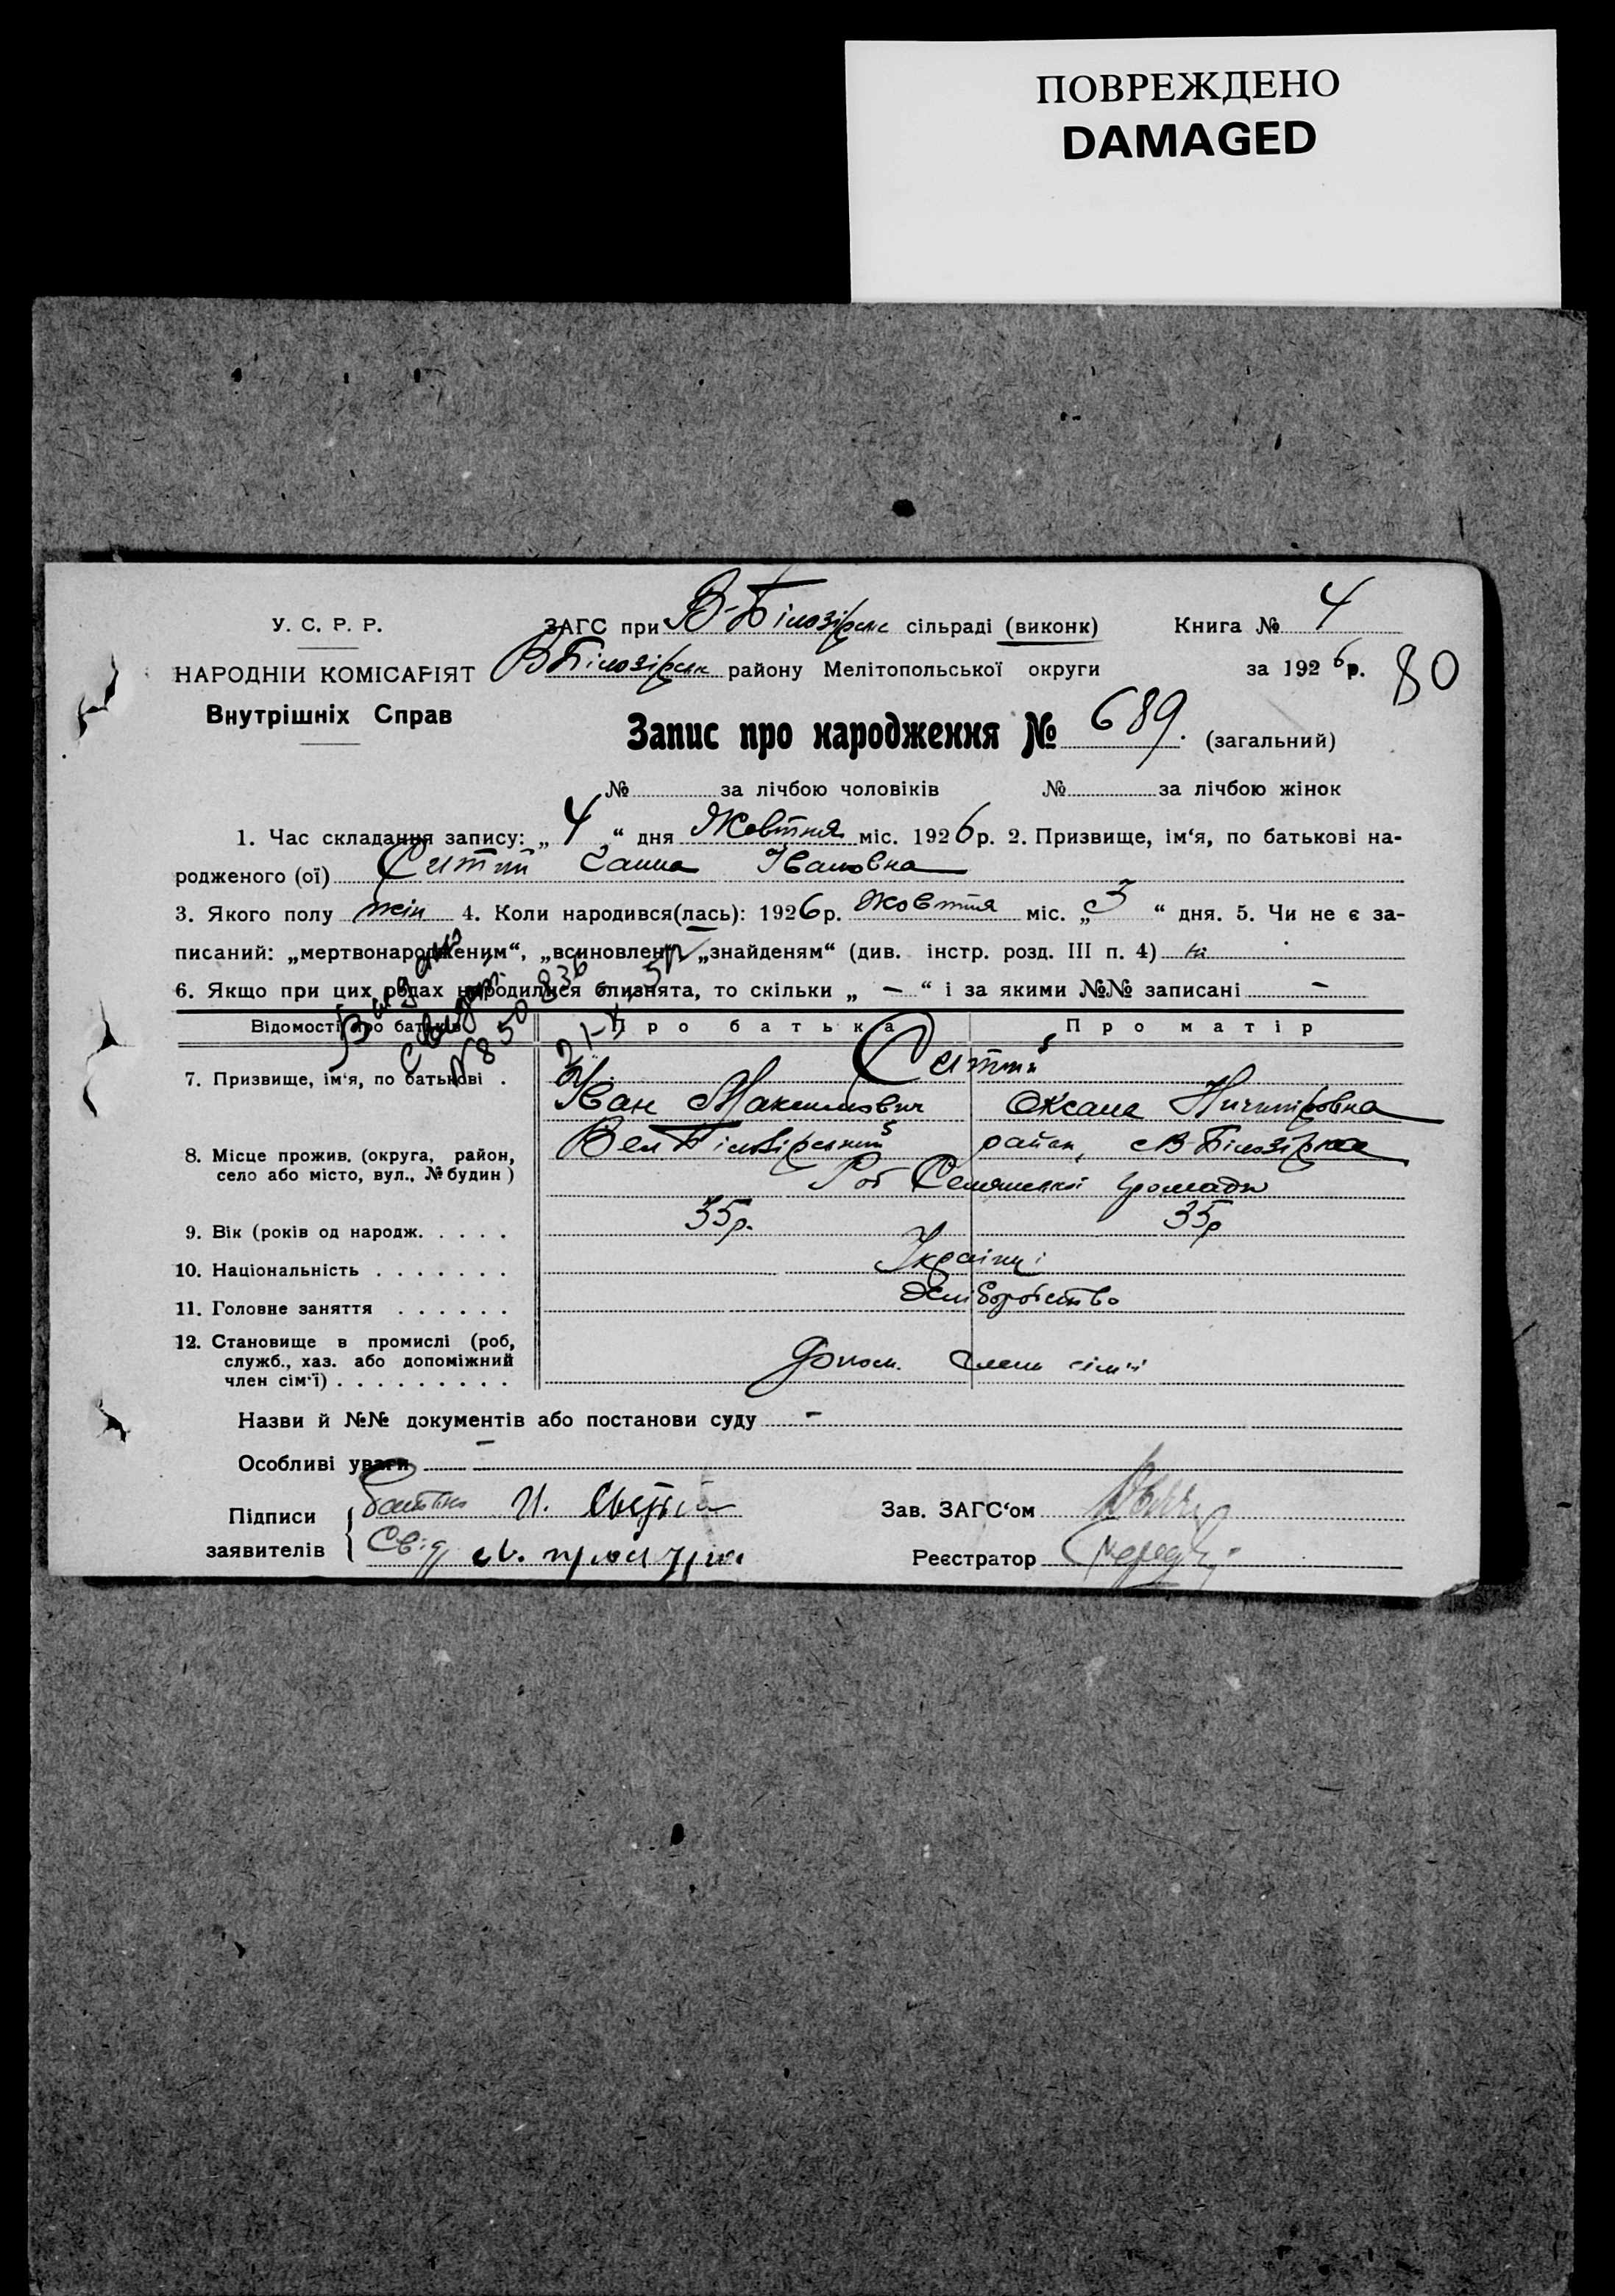 ПОВРЕЖДЕНО
DAMAGED
У. С. Р. Р.
НАРОДНІЙ КОМІСАРІЯТ
Внутрішніх Справ
ЗАГС при В-Білозірськ сільраді (виконк)
ВБілозірськ району Мелітопольської округи
Книга № 4
за 1926р.
80
Запис про народження № 689. (загальний)
№ за лічбою чоловіків № за лічбою жінок
1. Час складання запису: „ 4 “ дня Жовтня міс. 1926р. 2. Призвище, ім‘я, по батькові на-
родженого (ої) Ситий Ганна Івановна
3. Якого полу жін 4. Коли народився(лась): 1926р. Жовтня міс. „ 3 “ дня. 5. Чи не є за-
писаний: „мертвонародженим“, „всиновлен „знайденям“ (див. інстр. розд. III п. 4) ні
6. Якщо при цих родах народилися близнята, то скільки „ – “ і за якими №№ записані –
Видано
Відомості про батьків Про батька Про матір
7. Призвище, ім‘я, по батькові . Ситий
Іван Максимович Оксана Ничипировна
8. Місце прожив. (округа, район,
село або місто, вул., № будин)
Вел Білозірський район, с В-Білозірка
громади
9. Вік (років од народж. . . . . 35р. 35р
10. Національність . . . . . . . Українці
11. Головне заняття . . . . . . Хліборобство
12. Становище в промислі (роб,
служб., хаз. або допоміжний
член сім‘ї) . . . . . . . . . допом. член сім'ї
Назви й №№ документів або постанови суду –
Особливі уваги –
Підписи
заявителів
батько И. Сытый
Свід
Зав. ЗАГС‘ом
Реєстратор